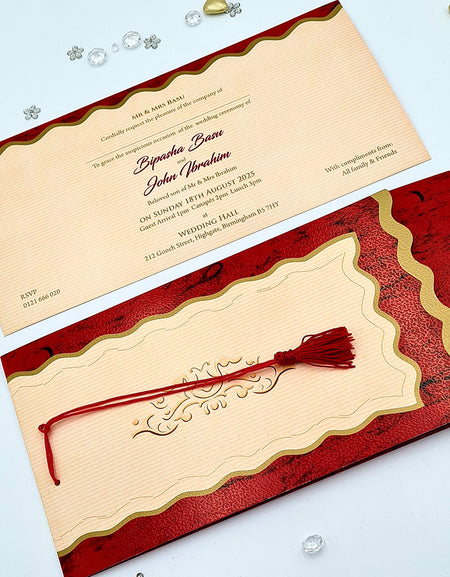 Mr & Mrs Basu
Cordially request the pleasure of the company of
To grace the auspicious occasion of the wedding ceremony of
Bipasha Basu
and
John Ibrahim
Beloved son of Mr & Mrs Ibrahim
on Sunday 18th August 2025
Guest Arrival 1pm Canapés 2pm Lunch 3pm
at
Wedding Hall
212 Gooch Street, Highgate, Birmingham B5 7HY
With compliments from:
All family & Friends
RSVP
0121 666 020